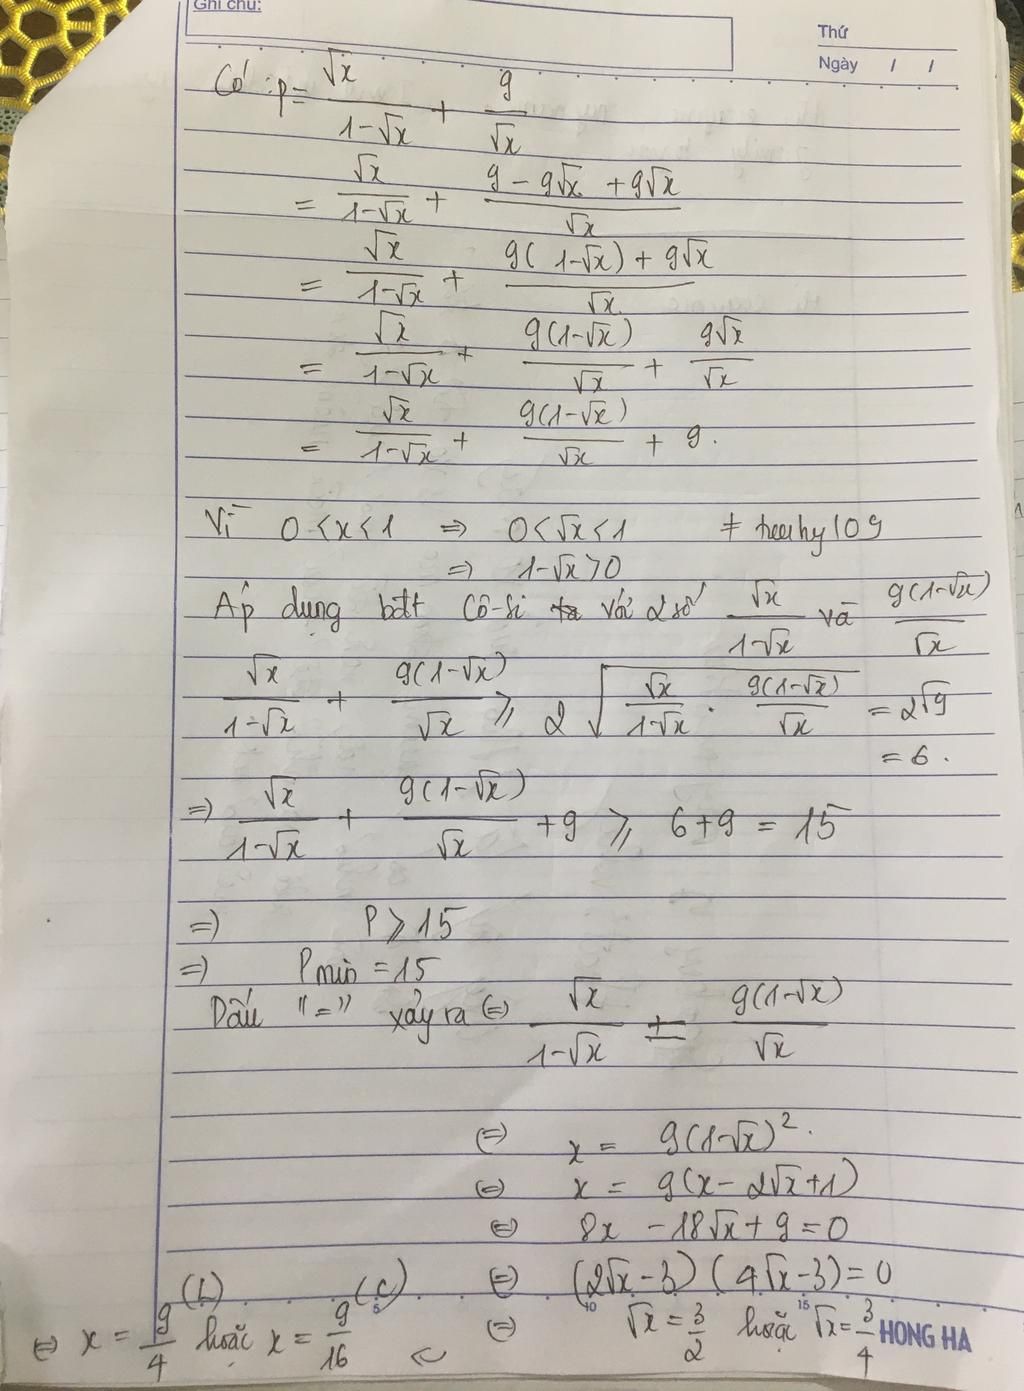 Ghi chú:
Thứ
Ngày / /
Có : p = √x/(1-√x) + 9/√x
= √x/(1-√x) + (9 - 9√x + 9√x)/√x
= √x/(1-√x) + (9(1-√x) + 9√x)/√x
= √x/(1-√x) + 9(1-√x)/√x + 9√x/√x
= √x/(1-√x) + 9(1-√x)/√x + 9.
Vì 0 < x < 1 ⇒ 0 < √x < 1 # truchy109
⇒ 1-√x > 0
Áp dụng bđt Cô-si với 2 số √x/(1-√x) và 9(1-√x)/√x
√x/(1-√x) + 9(1-√x)/√x ⩾ 2√(√x/(1-√x) . 9(1-√x)/√x) = 2√9
= 6.
⇒ √x/(1-√x) + 9(1-√x)/√x + 9 ⩾ 6+9 = 15
⇒ P ⩾ 15
⇒ Pmin = 15
Dấu "=" xảy ra ⇔ √x/(1-√x) = 9(1-√x)/√x
⇔ x = 9(1-√x)².
⇔ x = 9(x - 2√x + 1)
⇔ 8x - 18√x + 9 = 0
⇔ (2√x - 3)(4√x - 3) = 0
⇔ √x = 3/2 hoặc √x = 3/4
⇔ x = 9/4 (L) hoặc x = 9/16 (C)
5 10 15
HONG HA